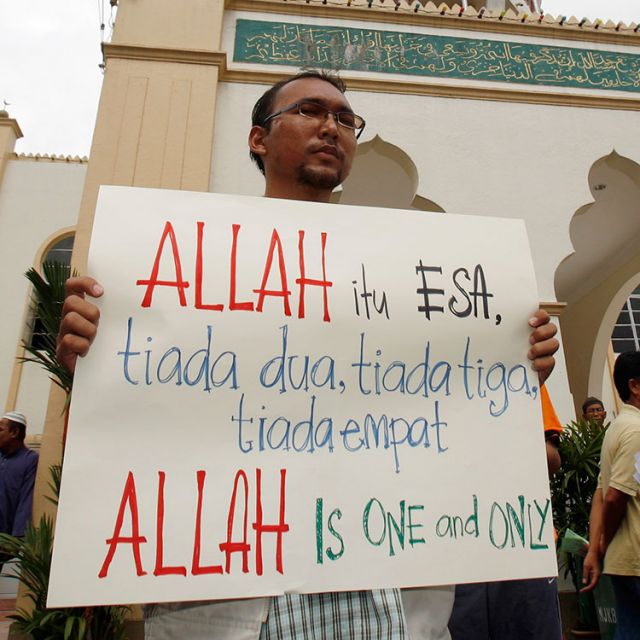 ALLAH itu ESA,
tiada dua, tiada tiga,
tiada empat
ALLAH Is ONE and ONLY